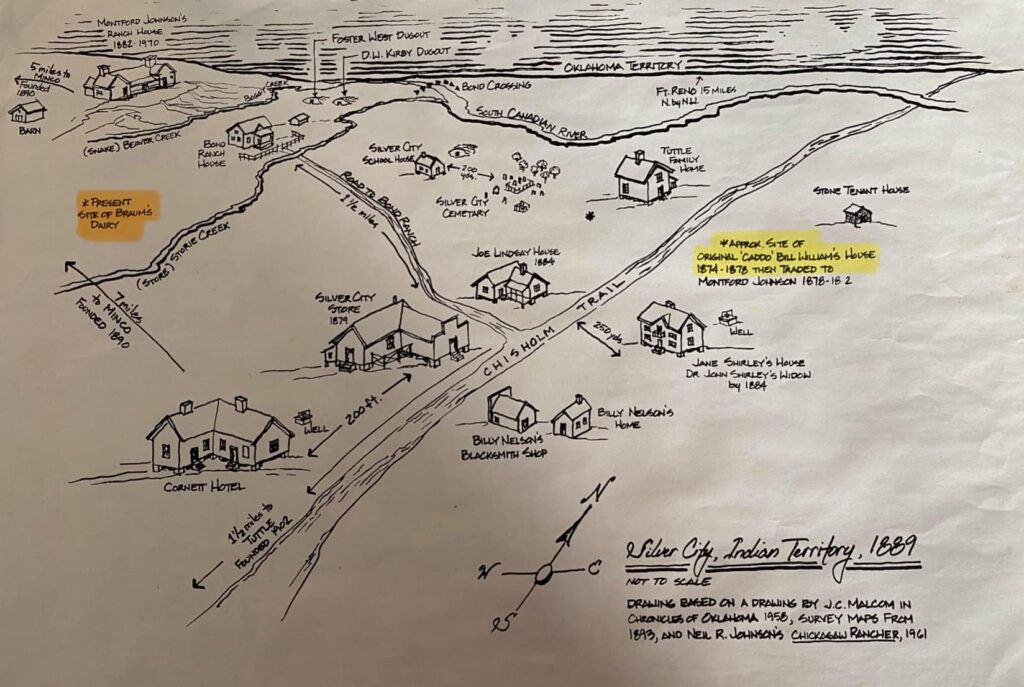 MONTFORD JOHNSON'S
RANCH HOUSE
1882-1970
5 miles to
MINCO
Founded
1890
BARN
FOSTER WEST DUGOUT
D.W. KIRBY DUGOUT
OKLAHOMA TERRITORY
BOND CROSSING
FT. RENO 15 MILES
N. by N.W.
BUGGY CREEK
SOUTH CANADIAN RIVER
(SNAKE) BEAVER CREEK
BOND
RANCH
HOUSE
SILVER CITY
SCHOOL HOUSE
200
yds.
SILVER CITY
CEMETARY
TUTTLE
FAMILY
HOME
STONE TENANT HOUSE
ROAD TO BOND RANCH
1½ miles
*PRESENT
SITE OF BRAUM'S
DAIRY
(STORE) STORIE CREEK
*
*APPROX. SITE OF
ORIGINAL 'CADDO' BILL WILLIAM'S HOUSE
1874-1878 THEN TRADED TO
MONTFORD JOHNSON 1878-18 2
JOE LINDSAY HOUSE
1884
7 miles
to MINCO
FOUNDED 1890
SILVER CITY
STORE
1879
CHISHOLM TRAIL
250 yds.
WELL
JANE SHIRLEY'S HOUSE
DR. JOHN SHIRLEY'S WIDOW
by 1884
200 ft.
WELL
CORNETT HOTEL
BILLY NELSON'S
HOME
BILLY NELSON'S
BLACKSMITH SHOP
1½ miles to
TUTTLE
FOUNDED 1902
N
W
E
S
Silver City, Indian Territory, 1889
NOT TO SCALE
DRAWING BASED ON A DRAWING BY J.C. MALCOM IN
CHRONICLES OF OKLAHOMA 1958, SURVEY MAPS FROM
1893, AND NEIL R. JOHNSON'S CHICKASAW RANCHER, 1961